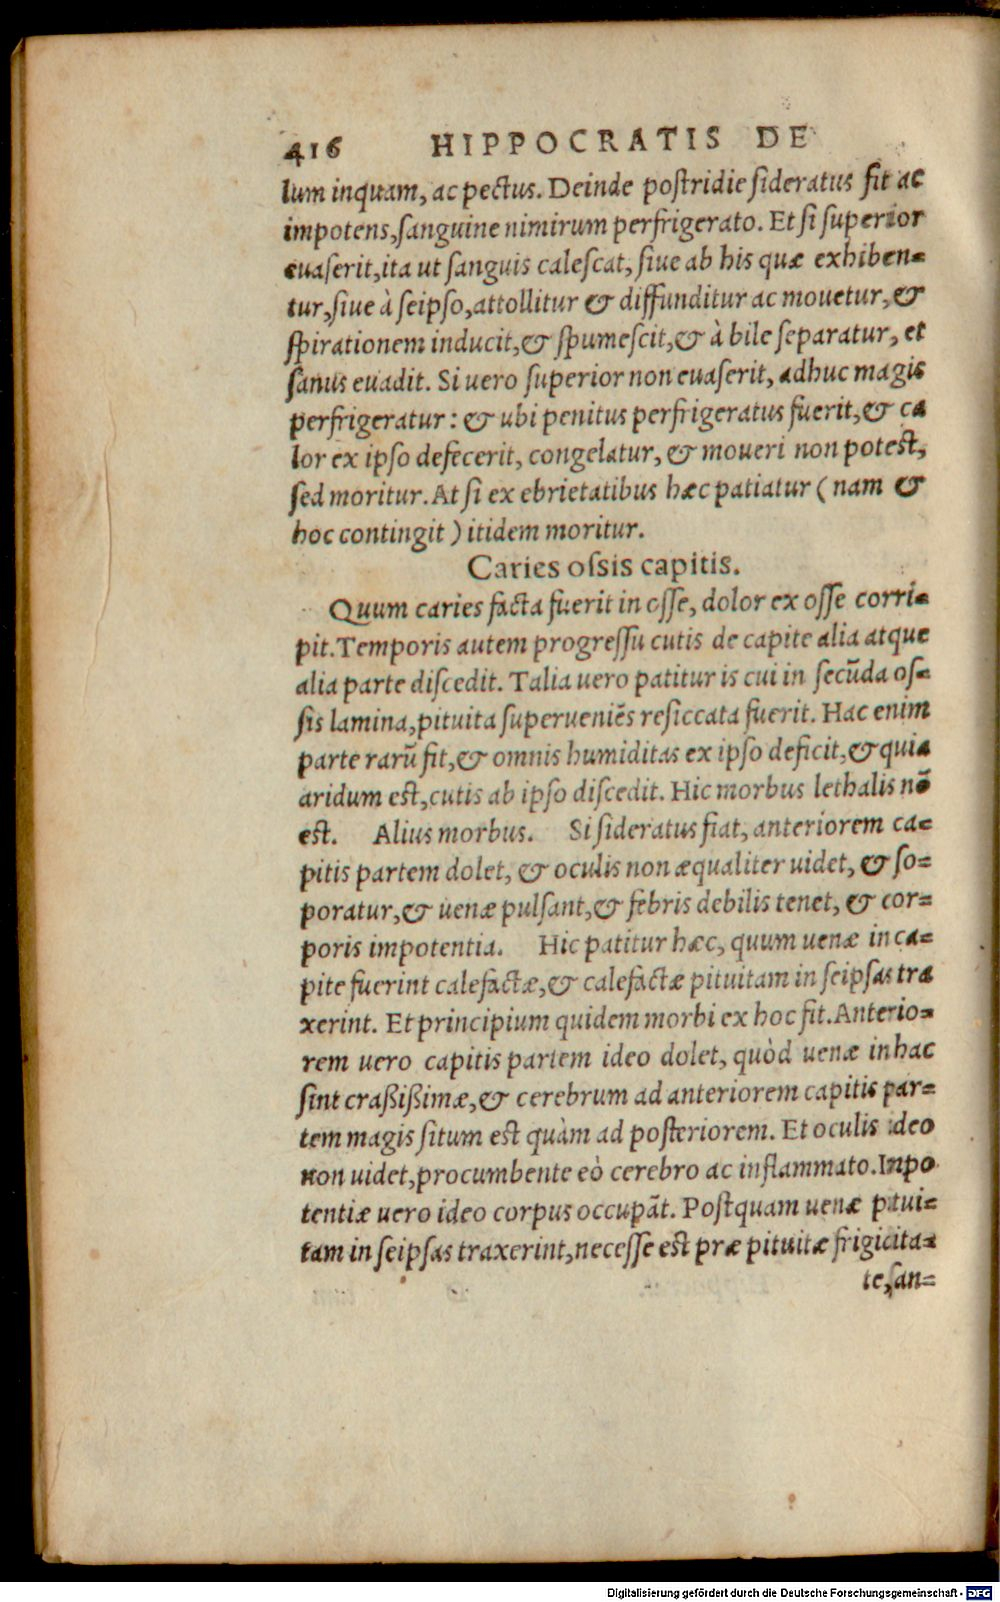 416 HIPPOCRATIS DE
lum inquam, ac pectus. Deinde postridie sideratus fit ac
impotens, sanguine nimirum perfrigerato. Et si superior
euaserit, ita ut sanguis calescat, siue ab his quæ exhiben=
tur, siue à seipso, attollitur & diffunditur ac mouetur, &
spirationem inducit, & spumescit, & à bile separatur, et
sanus euadit. Si uero superior non euaserit, adhuc magis
perfrigeratur: & ubi penitus perfrigeratus fuerit, & ca
lor ex ipso defecerit, congelatur, & moueri non potest,
sed moritur. At si ex ebrietatibus hæc patiatur (nam &
hoc contingit) itidem moritur.
Caries ossis capitis.
Quum caries facta fuerit in osse, dolor ex osse corri=
pit. Temporis autem progressu cutis de capite alia atque
alia parte discedit. Talia uero patitur is cui in secūda os=
sis lamina, pituita superueniēs resiccata fuerit. Hac enim
parte rarū fit, & omnis humiditas ex ipso deficit, & quia
aridum est, cutis ab ipso discedit. Hic morbus lethalis nō
est. Alius morbus. Si sideratus fiat, anteriorem ca=
pitis partem dolet, & oculis non æqualiter uidet, & so=
poratur, & uenæ pulsant, & febris debilis tenet, & cor=
poris impotentia. Hic patitur hæc, quum uenæ in ca=
pite fuerint calefactæ, & calefactæ pituitam in seipsas tra
xerint. Et principium quidem morbi ex hoc fit. Anterio=
rem uero capitis partem ideo dolet, quòd uenæ in hac
sint craßißimæ, & cerebrum ad anteriorem capitis par=
tem magis situm est quàm ad posteriorem. Et oculis ideo
non uidet, procumbente eò cerebro ac inflammato. Inpo
tentiæ uero ideo corpus occupāt. Postquam uenæ pitui=
tam in seipsas traxerint, necesse est præ pituitæ frigidita=
te, san=
Digitalisierung gefördert durch die Deutsche Forschungsgemeinschaft - DFG